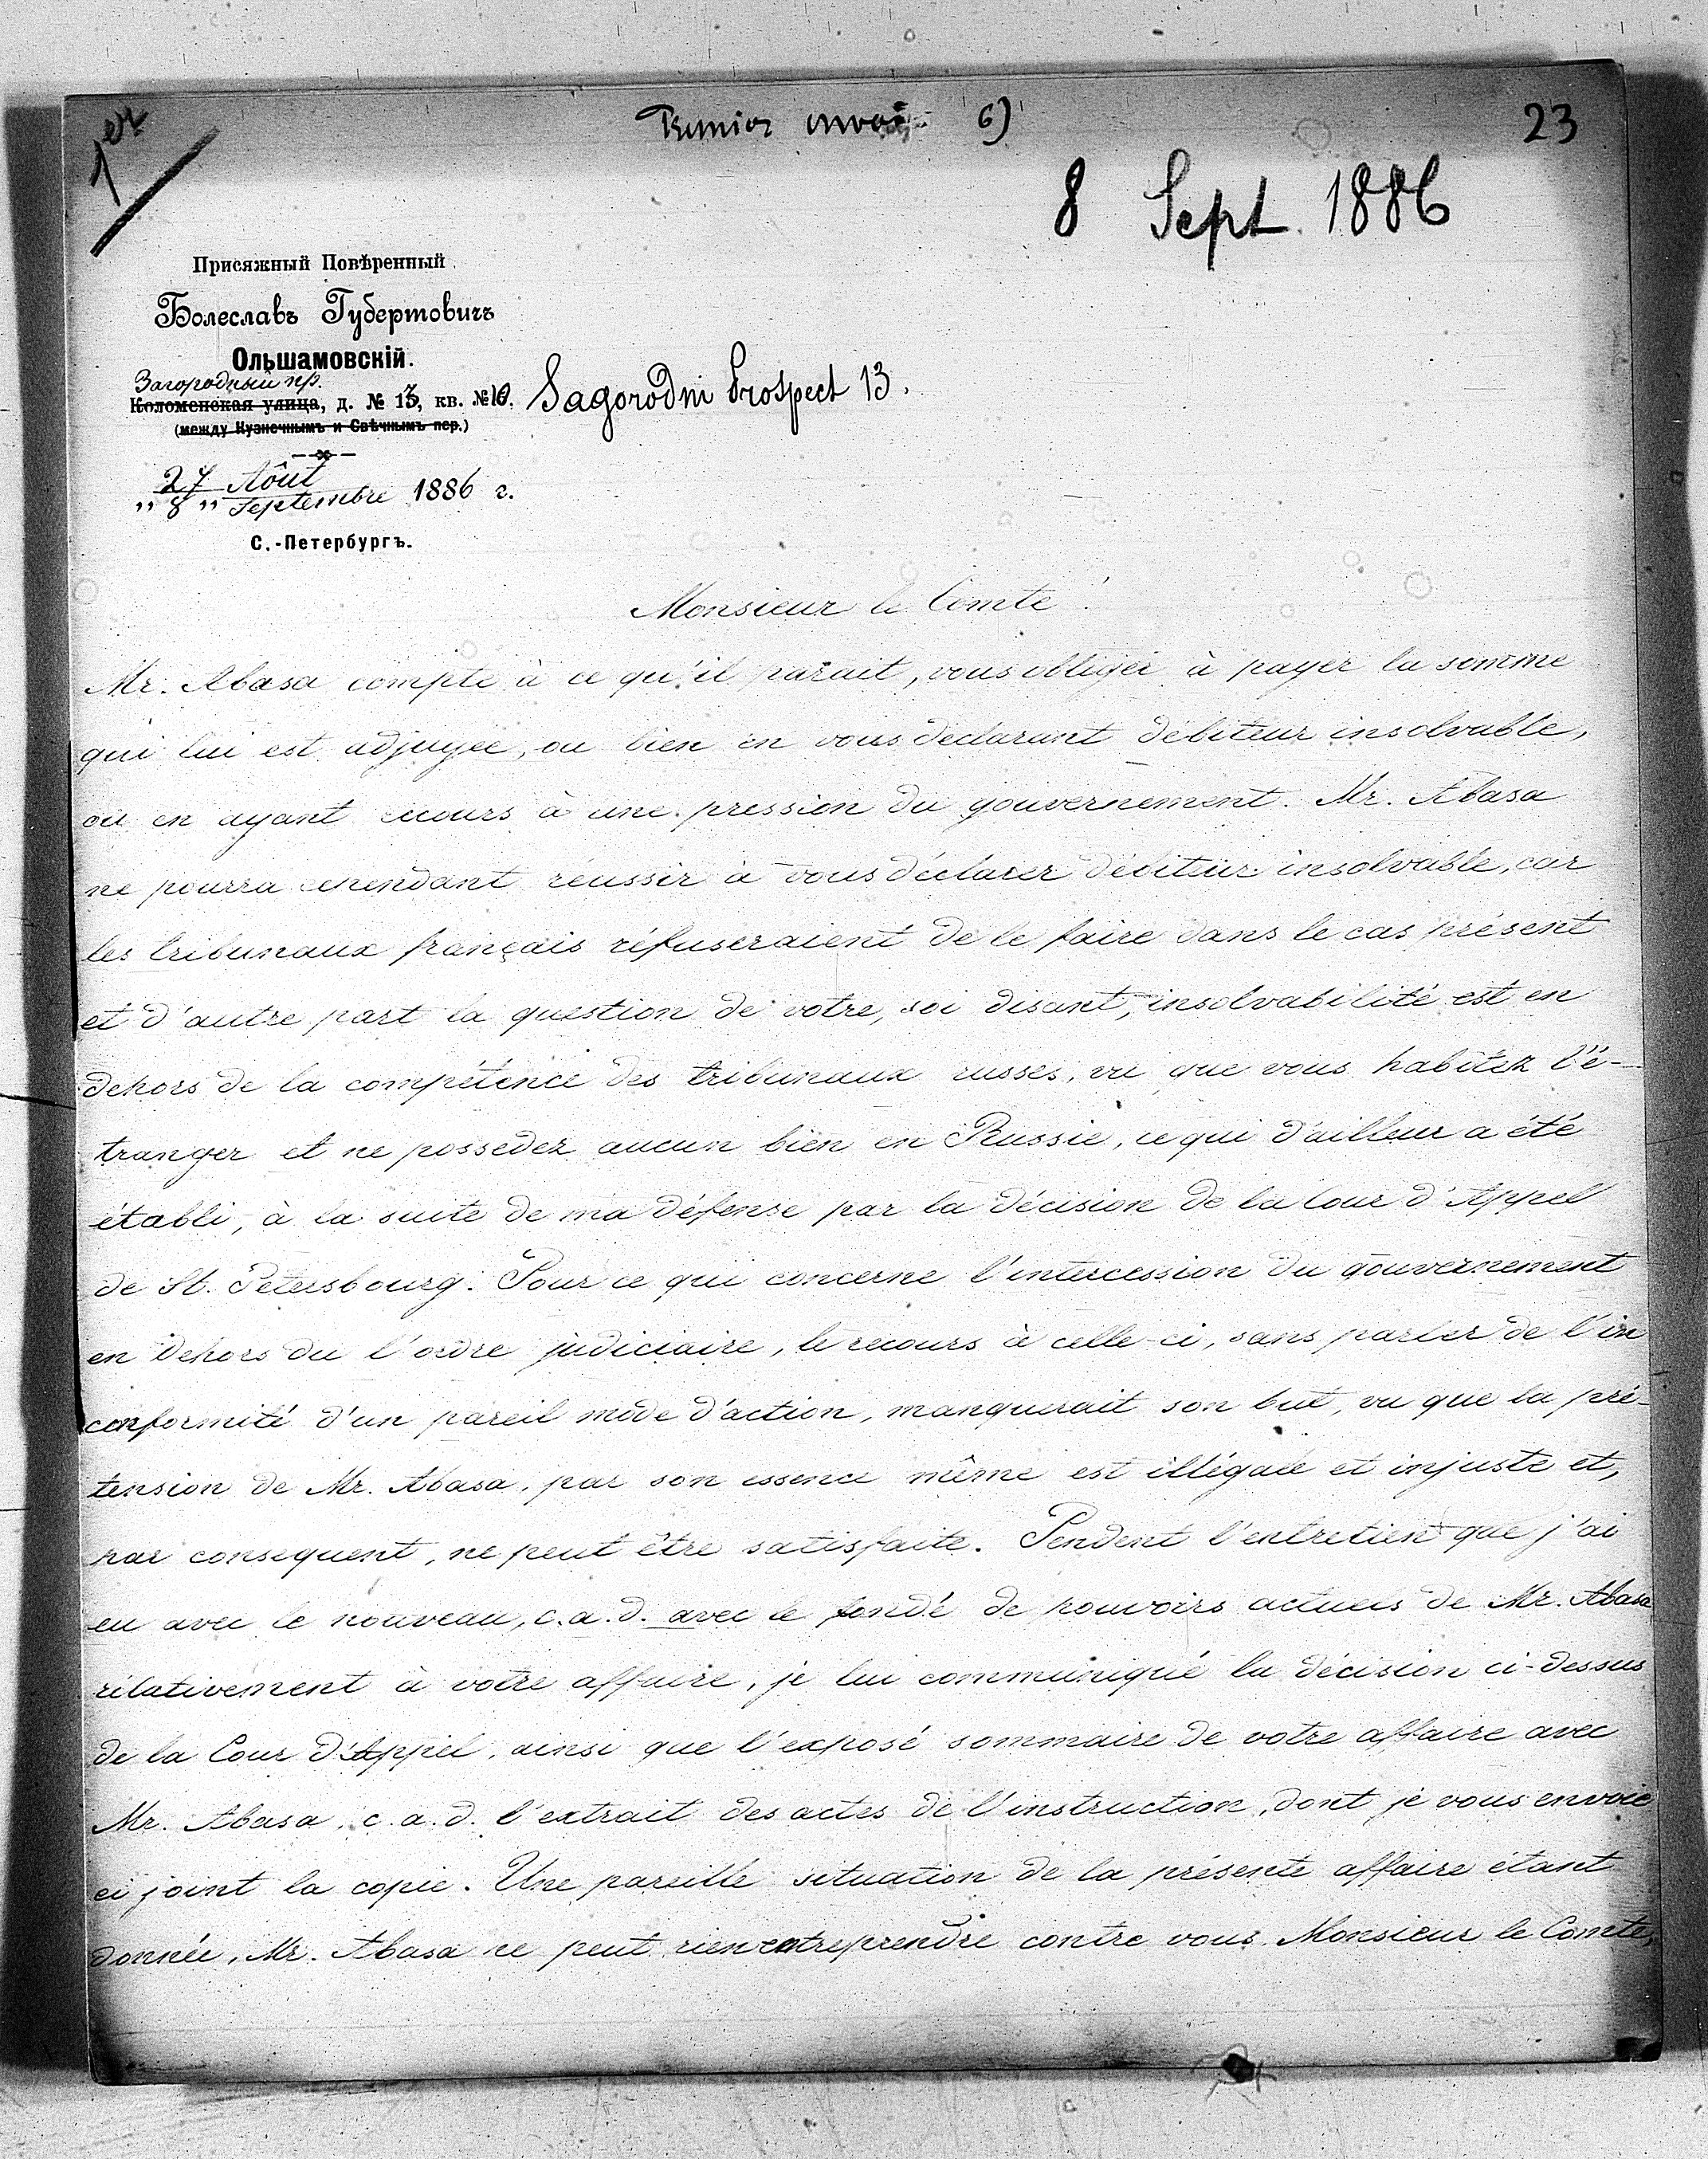 1er
envoi 6)
23
8 Sept. 1886
Присяжный Повѣренный
Болеславъ Губертовичъ
Ольшамовскій.
Загородный пр.
Коломенская улица, д. № 13, кв. № 10. Sagorodni Prospect 13.
(между Кузнечнымъ и Свѣчнымъ пер.)
27 Aôut
„ 8 „ Septembre 1886 г.
С.-Петербургъ.
Monsieur le Comte!
Mr. Abasa compte à ce qu'il parait, vous obliger à payer la somme
qui lui est adjugée, ou bien en vous declarant débiteur insolvable,
ou en ayant recours à une pression du gouvernement. Mr. Abasa
ne pourra cependant réussir à vous déclarer débiteur insolvable, car
les tribunaux français réfuseraient de le faire dans le cas présent
et d'autre part la question de votre, soi disant, insolvabilité est en
dehors de la compétence des tribunaux russes, vu que vous habitez l'é-
tranger et ne possedez aucun bien en Russie, ce qui d'ailleur a été
établi, à la suite de ma défense par la décision de la Cour d'Appel
de St. Petersbourg. Pour ce qui concerne l'intercession du gouvernement
en dehors du l'ordre judiciaire, le recours à celle-ci, sans parler de l'in
conformité d'un pareil mode d'action, manquerait son but, vu que la pré-
tension de Mr. Abasa, par son essence même est illégale et injuste et,
par consequent, ne peut être satisfaite. Pendent l'entretien que j'ai
eu avec le nouveau, c.a.d. avec le fondé de pouvoirs actuels de Mr. Abasa
rélativement à votre affaire, je lui communiqué la décision ci-dessus
de la Cour d'Appel, ainsi que l'exposé sommaire de votre affaire avec
Mr. Abasa, c.a.d. l'extrait des actes de l'instruction, dont je vous envoie
ci joint la copie. Une pareille situation de la présente affaire étant
donnée, Mr. Abasa ne peut rien entreprendre contre vous Monsieur le Comte,